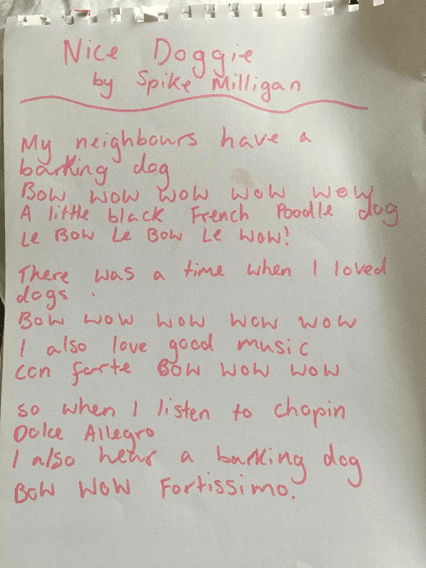 Nice Doggie
by Spike Milligan
My neighbours have a
barking dog
Bow wow wow wow wow
A little black French Poodle dog
Le Bow Le Bow Le Wow!
There was a time when I loved
dogs.
Bow wow wow wow wow
I also love good music
con forte Bow wow wow
So when I listen to Chopin
Dolce Allegro
I also hear a barking dog
Bow wow Fortissimo.